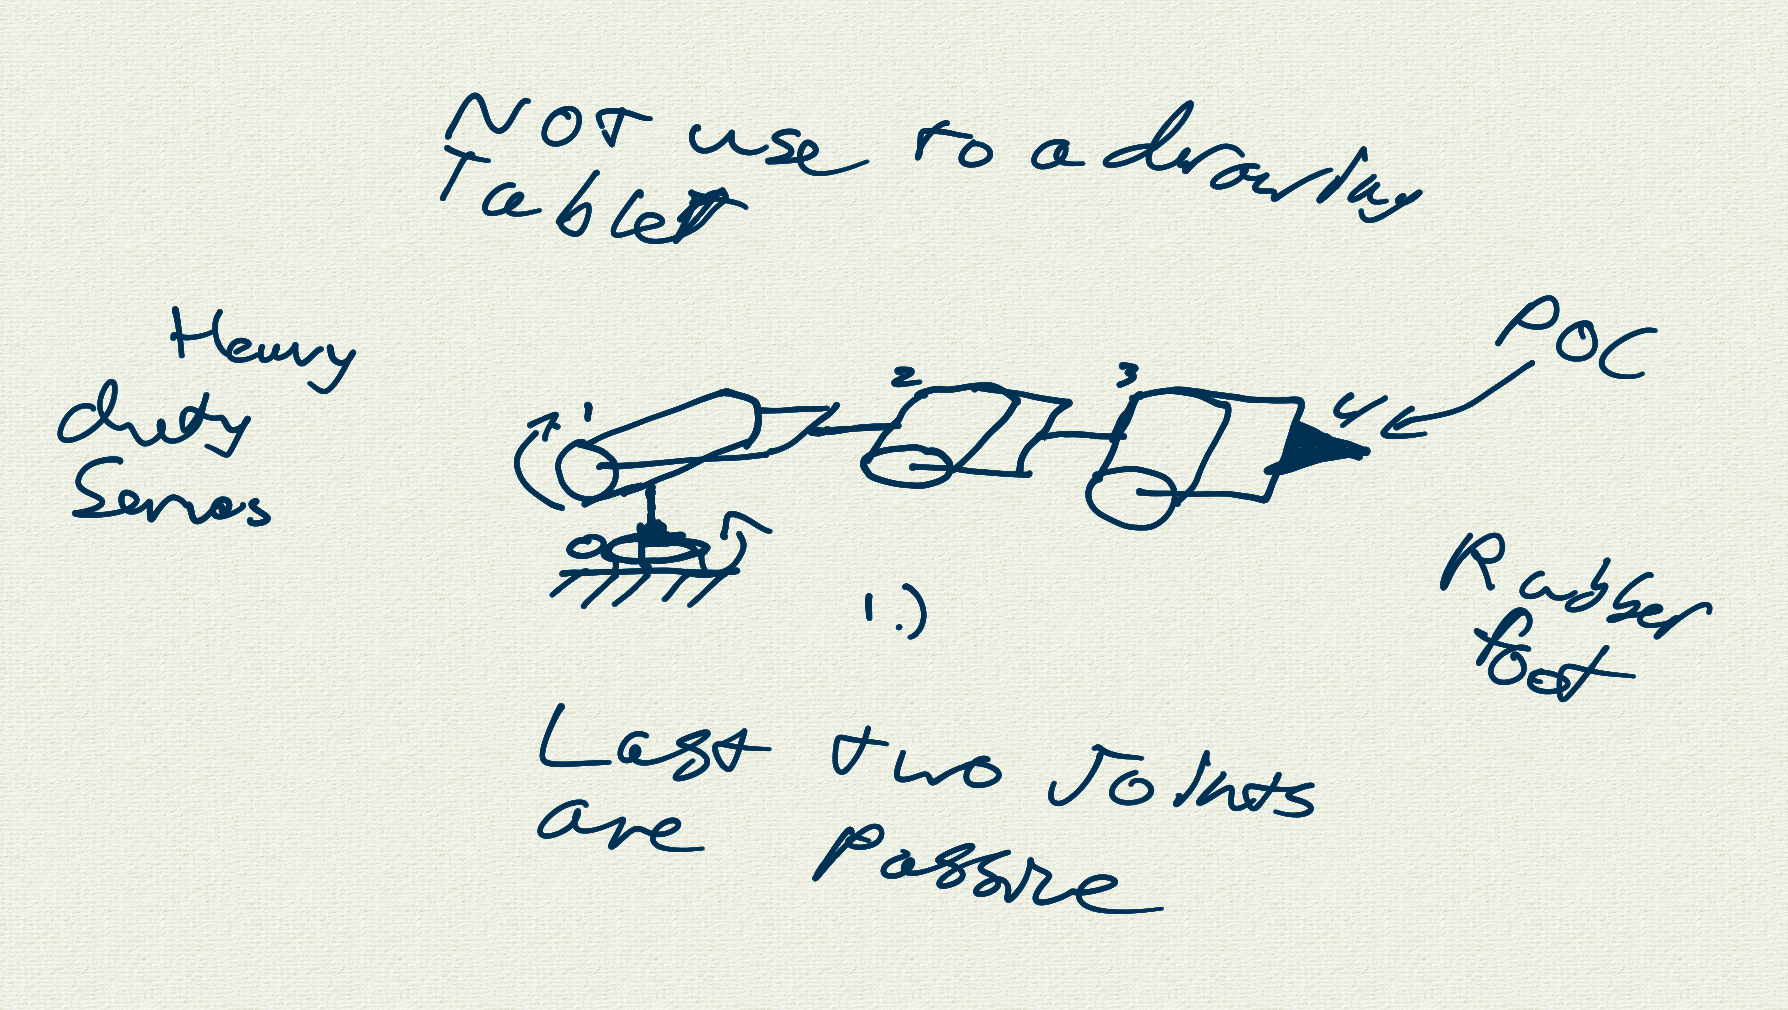 NOT use to a drawing
Tablet
Heavy
duty
Servos
POC
1
2
3
4
0
1.)
Rubber
foot
Last two Joints
are passive